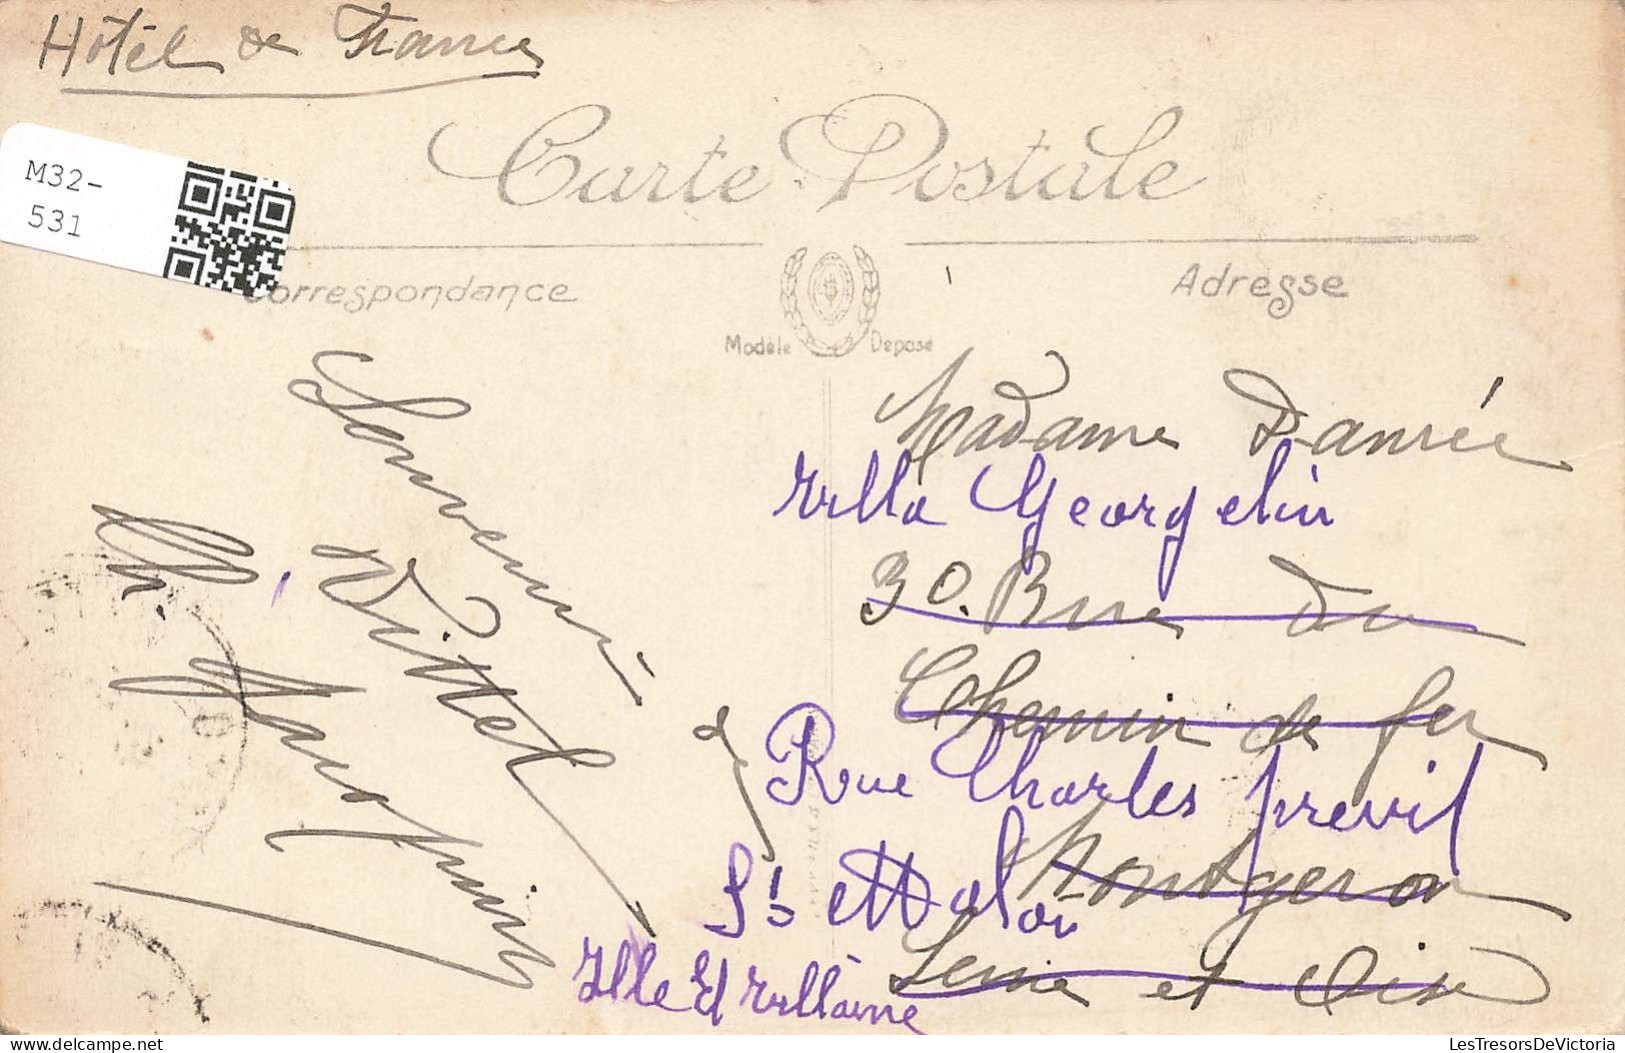 Hôtel de France
M32-
531
Carte Postale
Correspondance
Adresse
Modèle Déposé
Souvenir
de
Vittel
Ch.
Madame Danrée
Villa Georgelin
30. Rue du
Chemin de fer
Rue Charles previl
Montgeron
St Malo
Seine et Oise
Ille et villaine
LesTresorsDeVictoria